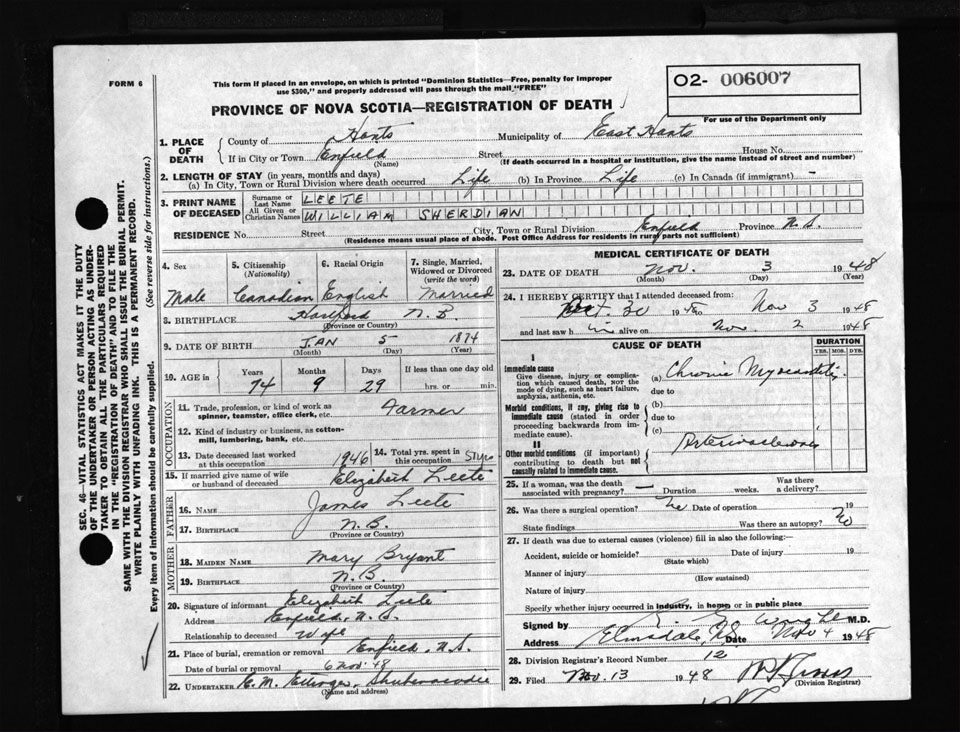 FORM 6
This form if placed in an envelope, on which is printed "Dominion Statistics—Free, penalty for improper
use $300," and properly addressed will pass through the mail "FREE"
O2- 006007
PROVINCE OF NOVA SCOTIA—REGISTRATION OF DEATH
For use of the Department only
1. PLACE OF DEATH
County of Hants Municipality of East Hants
If in City or Town Enfield Street House No.
(Name) (If death occurred in a hospital or institution, give the name instead of street and number)
2. LENGTH OF STAY (in years, months and days)
(a) In City, Town or Rural Division where death occurred Life (b) In Province Life (c) In Canada (if immigrant) -
3. PRINT NAME OF DECEASED
Surname or Last Name LEETE
All Given or Christian Names WILLIAM SHERDIAN
RESIDENCE No. Street City, Town or Rural Division Enfield Province N.S.
(Residence means usual place of abode. Post Office Address for residents in rural parts not sufficient)
4. Sex Male
5. Citizenship (Nationality) Canadian
6. Racial Origin English
7. Single, Married, Widowed or Divorced (write the word) Married
8. BIRTHPLACE Hartford N.B.
(Province or Country)
9. DATE OF BIRTH JAN 5 1874
(Month) (Day) (Year)
10. AGE in Years Months Days If less than one day old
74 9 29 hrs. or min.
OCCUPATION
11. Trade, profession, or kind of work as spinner, teamster, office clerk, etc. Farmer
12. Kind of industry or business, as cotton-mill, lumbering, bank, etc.
13. Date deceased last worked at this occupation 1946
14. Total yrs. spent in this occupation 51yrs
15. If married give name of wife or husband of deceased Elizabeth Leete
FATHER
16. NAME James Leete
17. BIRTHPLACE N.B.
(Province or Country)
MOTHER
18. MAIDEN NAME Mary Bryant
19. BIRTHPLACE N.B.
(Province or Country)
20. Signature of informant Elizabeth Leete
Address Enfield, N.S.
Relationship to deceased Wife
21. Place of burial, cremation or removal Enfield, N.S.
Date of burial or removal 6 Nov. 48
22. UNDERTAKER E. M. Ettinger, Shubenacadie
(Name and address)
MEDICAL CERTIFICATE OF DEATH
23. DATE OF DEATH Nov. 3 1948
(Month) (Day) (Year)
24. I HEREBY CERTIFY that I attended deceased from:
Oct. 30 1948 to Nov 3 1948
and last saw h im alive on Nov. 2 1948
CAUSE OF DEATH
DURATION
YRS. MOS. DYS.
I
Immediate cause
Give disease, injury or complication which caused death, NOT the mode of dying, such as heart failure, asphyxia, asthenia, etc.
(a) Chronic Myocarditis
due to
Morbid conditions, if any, giving rise to immediate cause (stated in order proceeding backwards from immediate cause).
(b)
due to
(c)
II
Other morbid conditions (if important) contributing to death but not causally related to immediate cause.
Arteriosclerosis
25. If a woman, was the death associated with pregnancy? — Duration weeks. Was there a delivery?
26. Was there a surgical operation? No Date of operation 19
State findings Was there an autopsy? No
27. If death was due to external causes (violence) fill in also the following:—
Accident, suicide or homicide? Date of injury 19
(State which)
Manner of injury
(How sustained)
Nature of injury
Specify whether injury occurred in industry, in home or in public place
Signed by M.D.
Address Elmsdale, N.S. Date Nov 4 1948
28. Division Registrar's Record Number 12
29. Filed Nov. 13 1948
(Division Registrar)
SEC. 46—VITAL STATISTICS ACT MAKES IT THE DUTY
OF THE UNDERTAKER OR PERSON ACTING AS UNDER-
TAKER TO OBTAIN ALL THE PARTICULARS REQUIRED
IN THE "REGISTRATION OF DEATH" AND TO FILE THE
SAME WITH THE DIVISION REGISTRAR WHO SHALL ISSUE THE BURIAL PERMIT.
WRITE PLAINLY WITH UNFADING INK. THIS IS A PERMANENT RECORD.
Every item of information should be carefully supplied. (See reverse side for instructions.)